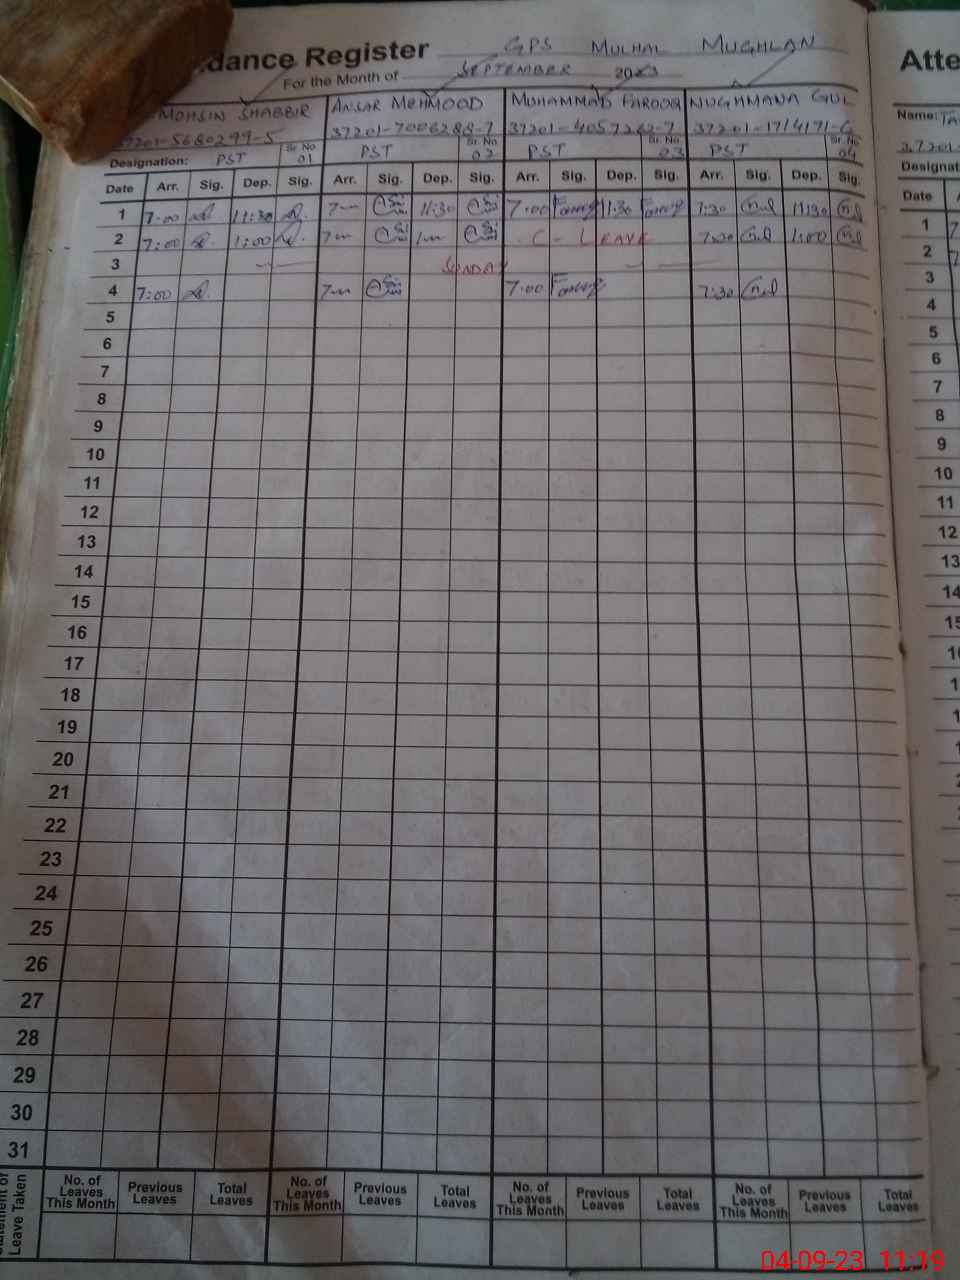 dance Register GPS MULHAL MUGHLAN
For the Month of SEPTEMBER 2023
MOHSIN SHABBIR ANSAR MEHMOOD MUHAMMAD FAROOQ NUGHMANA GUL
37201-5680299-5 37201-7006288-7 37201-4057262-7 37201-1714171-6
Designation: PST Sr. No 01 PST Sr. No 02 PST Sr. No 03 PST Sr. No 04
Date Arr. Sig. Dep. Sig. Arr. Sig. Dep. Sig. Arr. Sig. Dep. Sig. Arr. Sig. Dep. Sig.
1 7:00 11:30 7 11:30 7:00 Farooq 11:30 Farooq 7:30 Gul 11:30 Gul
2 7:00 1:00 7 1 C-LEAVE 7:30 Gul 1:00 Gul
3 SUNDAY
4 7:00 7 7:00 Farooq 7:30 Gul
5
6
7
8
9
10
11
12
13
14
15
16
17
18
19
20
21
22
23
24
25
26
27
28
29
30
31
Leave Taken
No. of Leaves This Month Previous Leaves Total Leaves No. of Leaves This Month Previous Leaves Total Leaves No. of Leaves This Month Previous Leaves Total Leaves No. of Leaves This Month Previous Leaves Total Leaves
Atte
Name:
Designat
Date
1
2
3
4
5
6
7
8
9
10
11
12
13
14
15
04-09-23 11:19